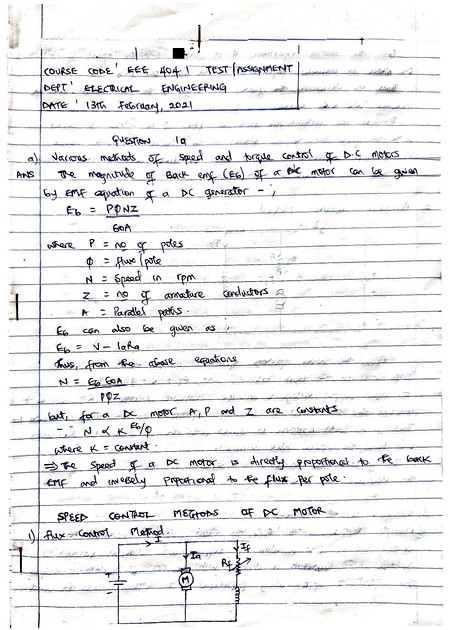 COURSE CODE: EEE 404 | TEST/ASSIGNMENT
DEPT: ELECTRICAL ENGINEERING
DATE: 13th February, 2021
QUESTION 1a
a) Various methods of speed and torque control of D.C motors
ANS The magnitude of Back emf (Eb) of a motor can be given
by EMF equation of a DC generator -;
Eb = PØNZ
60A
where P = no of poles
Ø = flux/pole
N = Speed in rpm
Z = no of armature conductors
A = Parallel paths.
Eb can also be given as;
Eb = V - IaRa
Thus, from the above equations
N = Eb 60A
PØZ
but, for a DC motor A, P and Z are constants
∴ N ∝ K Eb/Ø
where K = constant.
⇒ The Speed of a DC motor is directly proportional to the back
EMF and inversely Proportional to the flux per pole.
SPEED CONTROL METHODS OF DC MOTOR
1) flux Control Method.
I
Ia
If
Rf
+
M
-